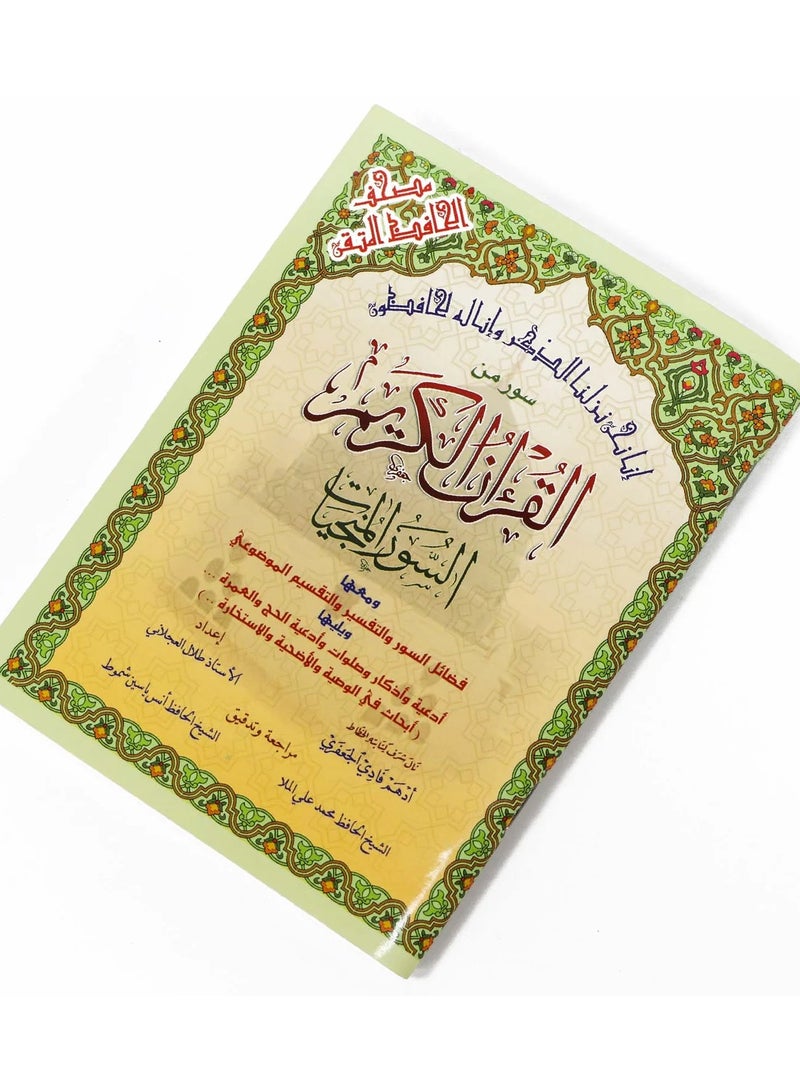 مصحف
الحافظ المتقن
إنا نحن نزلنا الذكر وإنا له لحافظون
سور من
القرآن الكريم
السور المنجيات
ومعها
فضائل السور والتفسير والتقسيم الموضوعي
ويليها
أدعية وأذكار وصلوات وأدعية الحج والعمرة ...
( أبحاث في الوصية والأضحية والاستخارة ... )
إعداد
الأستاذ طلال العجلاني
نال شرف كتابته الخطاط
أدهم فادي الجعفري
مراجعة وتدقيق
الشيخ الحافظ أنس ياسين شموط
الشيخ الحافظ محمد علي الملا